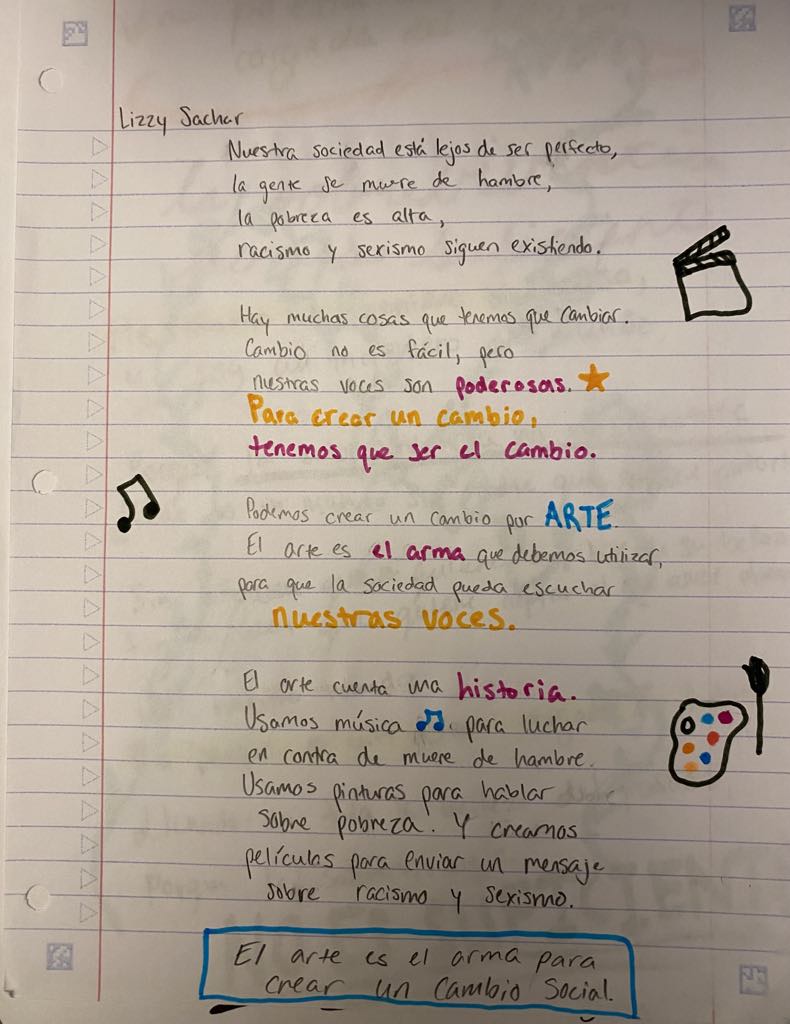 Lizzy Sachar
Nuestra sociedad está lejos de ser perfecto,
la gente se muere de hambre,
la pobreza es alta,
racismo y sexismo siguen existiendo.
Hay muchas cosas que tenemos que cambiar.
Cambio no es fácil, pero
nuestras voces son poderosas.
Para crear un cambio,
tenemos que ser el cambio.
Podemos crear un cambio por ARTE.
El arte es el arma que debemos utilizar,
para que la sociedad pueda escuchar
nuestras voces.
El arte cuenta una historia.
Usamos música para luchar
en contra de muere de hambre.
Usamos pinturas para hablar
sobre pobreza. Y creamos
películas para enviar un mensaje
sobre racismo y sexismo.
El arte es el arma para
crear un cambio social.